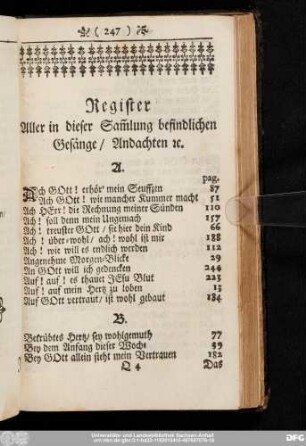 ( 247 )
Register
Aller in dieser Sam̃lung befindlichen
Gesänge/ Andachten ꝛc.
A.
pag.
Ach GOtt! erhör' mein Seufftzen 87
Ach GOtt! wie mancher Kummer macht 51
Ach HErr! die Rechnung meiner Sünden 110
Ach! soll denn mein Ungemach 157
Ach! treuster GOtt/ sie hier dein Kind 66
Ach! über-wohl/ ach! wohl ist mir 188
Ach! wie will es endlich werden 112
Angenehme Morgen-Blicke 29
An GOtt will ich gedencken 244
Auf! auf! es thauet JEsu Blut 223
Auf! auf mein Hertz zu loben 13
Auf GOtt vertraut/ ist wohl gebaut 184
B.
Betrübtes Hertz/ sey wohlgemuth 77
Bey dem Anfang dieser Woche 59
Bey GOtt allein steht mein Vertrauen 182
Q 4 Das
Universitäts- und Landesbibliothek Sachsen-Anhalt